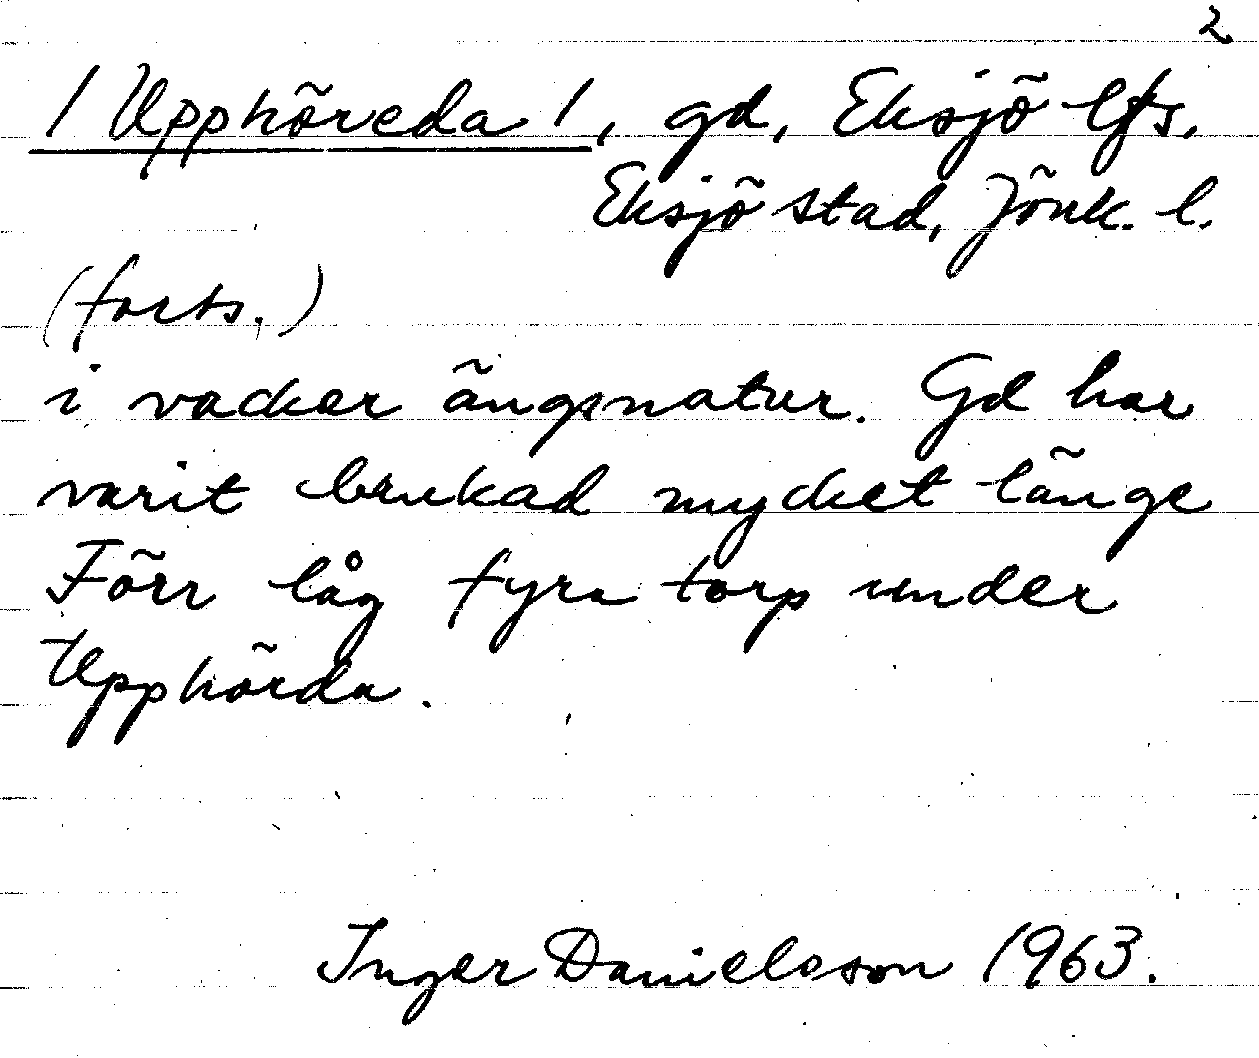 2
/Upphöreda/, gd, Eksjö lfs.
Eksjö stad, Jönk. l.
(forts.)
i vacker ängsnatur. Gd har
varit brukad mycket länge
Förr låg fyra torp under
Upphörda.
Inger Danielsson 1963.